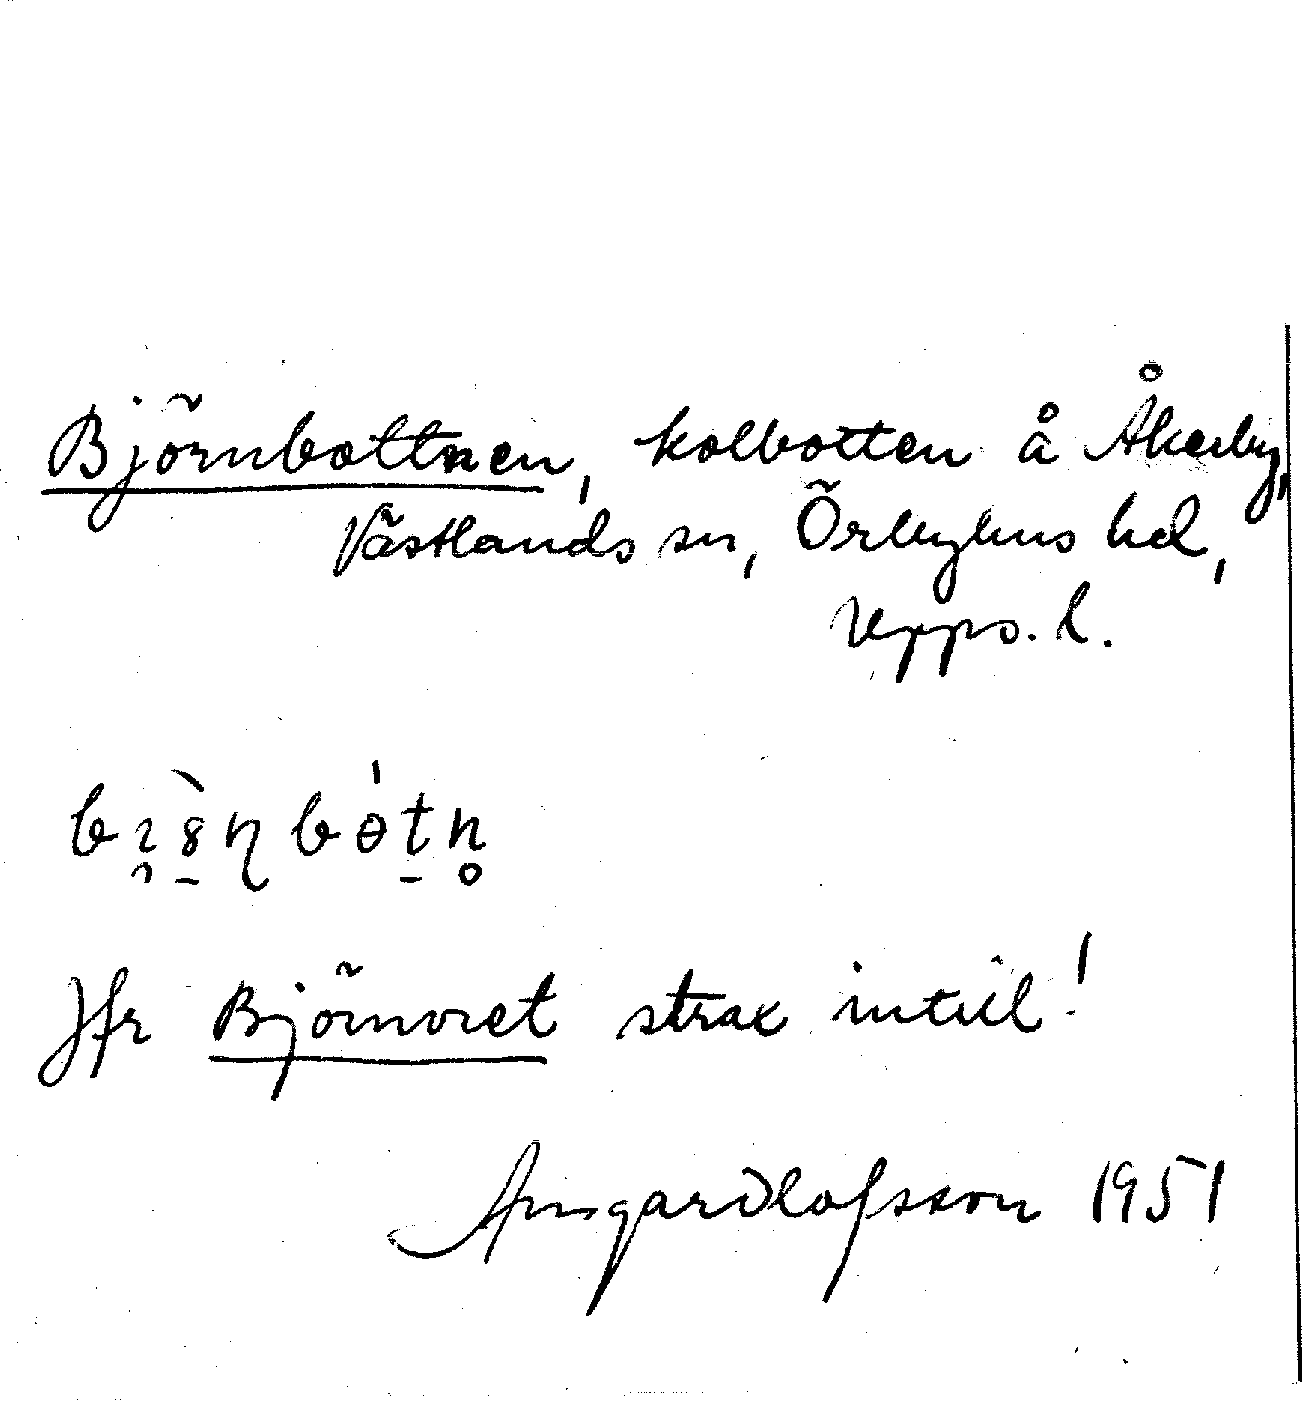 Björnbottnen, kolbotten å Åkerby,
Västlands sn, Örbyhus hd,
Upps. l.
Jfr Björnoret strax intill!
Olofsson 1951